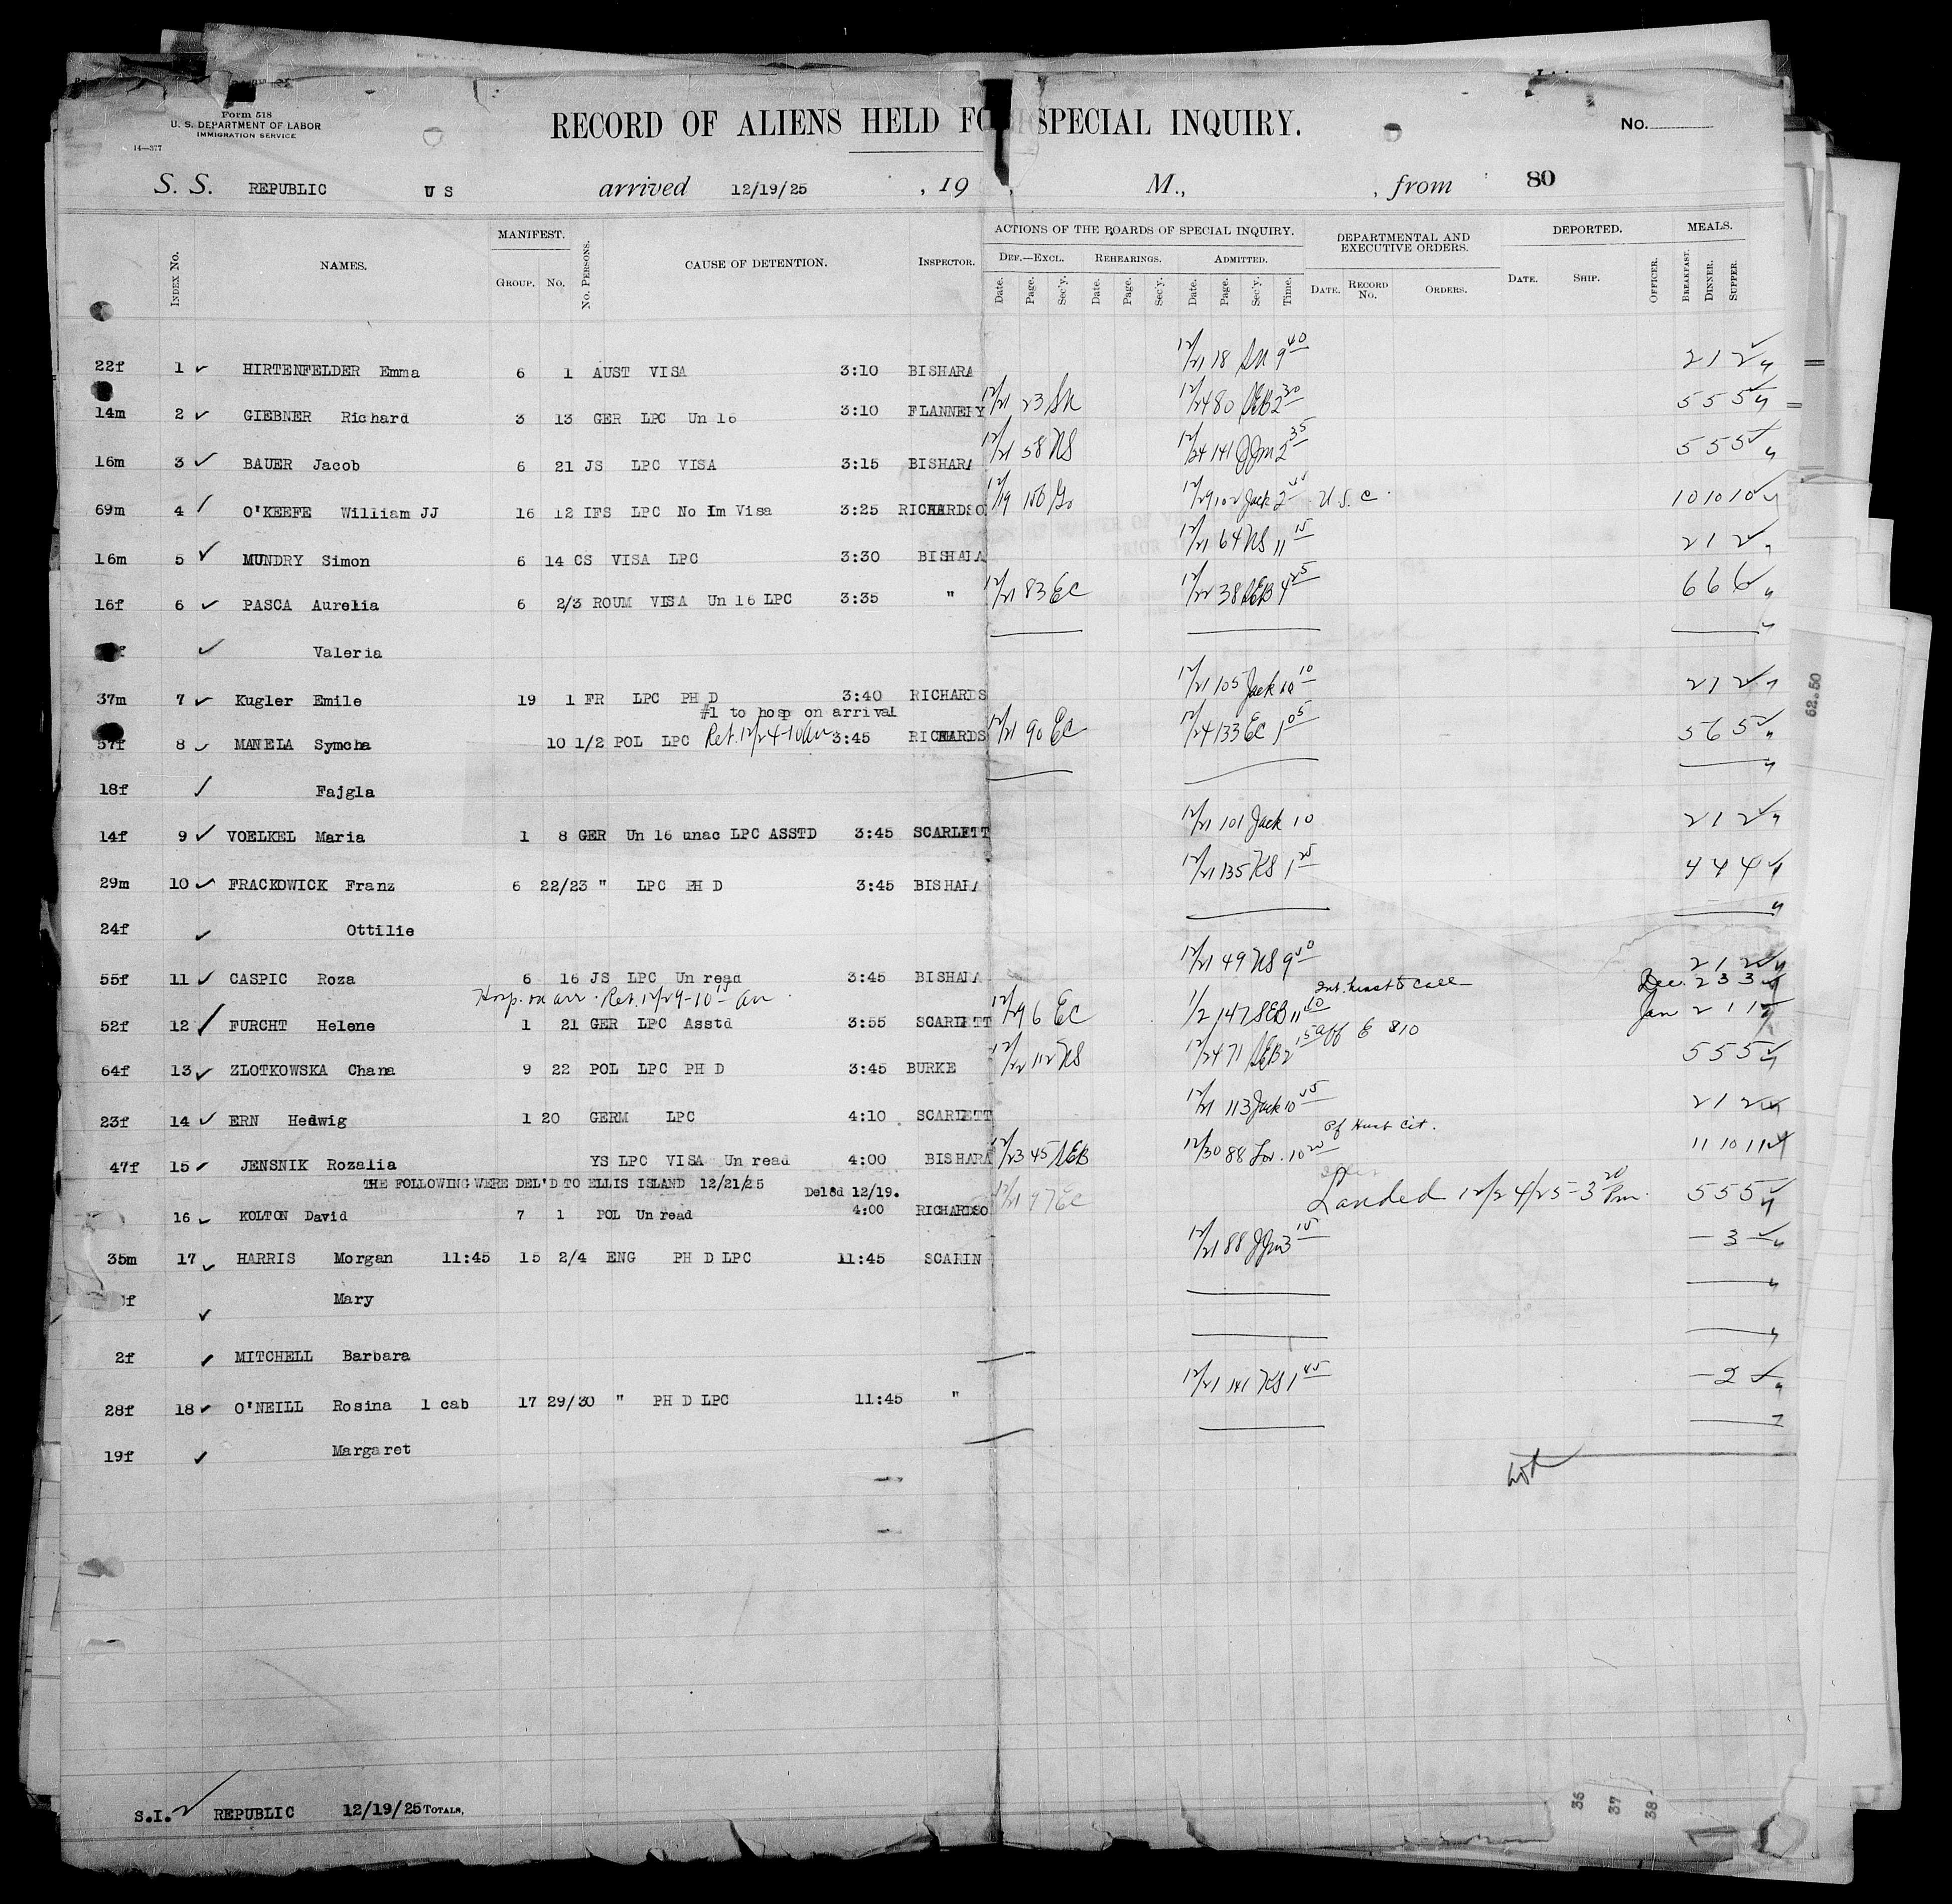 Form 518
U. S. DEPARTMENT OF LABOR
IMMIGRATION SERVICE
14—377
RECORD OF ALIENS HELD FO SPECIAL INQUIRY.
No.
S. S. REPUBLIC U S arrived 12/19/25 , 19 M., , from 80
MANIFEST. ACTIONS OF THE BOARDS OF SPECIAL INQUIRY. DEPARTMENTAL AND EXECUTIVE ORDERS. DEPORTED. MEALS.
Index No. NAMES. Group. No. No. Persons. CAUSE OF DETENTION. Inspector. Def.—Excl. Rehearings. Admitted.
Date. Page. Sec'y. Date. Page. Sec'y. Date. Page. Sec'y. Time. Date. Record No. Orders. Date. Ship. Officer. Breakfast. Dinner. Supper.
22f 1 HIRTENFELDER Emma 6 1 AUST VISA 3:10 BISHARA 12/21 18 9 40 2 1 2
14m 2 GIEBNER Richard 3 13 GER LPC Un 16 3:10 FLANNERY 12/21 23 12/24 80 SEB 2 30 5 5 5
16m 3 BAUER Jacob 6 21 JS LPC VISA 3:15 BISHARA 12/21 58 NS 12/24 141 JJm 2 35 5 5 5
69m 4 O'KEEFE William JJ 16 12 IFS LPC No Im Visa 3:25 RICHARDSO 12/19 12/29 102 Jack 2 U.S.C. 10 10 10
16m 5 MUNDRY Simon 6 14 CS VISA LPC 3:30 BISHARA 12/21 64 NS 11 15 2 1 2
16f 6 PASCA Aurelia 6 2/3 ROUM VISA Un 16 LPC 3:35 " 12/21 83 EC 12/22 38 SEB 4 25 6 6 6
f Valeria
37m 7 Kugler Emile 19 1 FR LPC PH D 3:40 RICHARDS 12/21 105 Jack 10 10 2 1 2
#1 to hosp on arrival
57f 8 MANELA Symcha 10 1/2 POL LPC Ret. 12/24-10 am 3:45 RICHARDS 12/21 90 EC 12/24 133 EC 1 05 5 6 5
18f Fajgla
14f 9 VOELKEL Maria 1 8 GER Un 16 unac LPC ASSTD 3:45 SCARLETT 12/21 101 Jack 10 2 1 2
29m 10 FRACKOWICK Franz 6 22/23 " LPC PH D 3:45 BISHARA 12/21 135 KS 1 25 4 4 4
24f Ottilie
55f 11 CASPIC Roza 6 16 JS LPC Un read 3:45 BISHARA 12/21 49 NS 9 40 2 1 2
Hosp. on arr. Ret. 12/29-10 15 am to call Dec. 2 3 3
52f 12 FURCHT Helene 1 21 GER LPC Asstd 3:55 SCARLETT 12/29 6 EC 1/2 147 SEB 11 10 Jan 2 1 1
aff 810
64f 13 ZLOTKOWSKA Chana 9 22 POL LPC PH D 3:45 BURKE 12/22 112 NS 12/24 71 SEB 2 15 5 5 5
23f 14 ERN Hedwig 1 20 GERM LPC 4:10 SCARLETT 12/21 113 Jack 10 45 2 1 2
Pf Husb Cit.
47f 15 JENSNIK Rozalia YS LPC VISA Un read 4:00 BISHARA 12/23 45 SEB 12/30 88 10 20 11 10 11
THE FOLLOWING WERE DEL'D TO ELLIS ISLAND 12/21/25 Del&d 12/19.
16 KOLTON David 7 1 POL Un read 4:00 RICHARDSO 12/21 97 EC Landed 12/24/25-3 20 Pm. 5 5 5
35m 17 HARRIS Morgan 11:45 15 2/4 ENG PH D LPC 11:45 SCARIN 12/21 88 JJm 3 15 — 3 —
f Mary
2f MITCHELL Barbara
28f 18 O'NEILL Rosina 1 cab 17 29/30 " PH D LPC 11:45 " 12/21 141 KS 1 45 — 2
19f Margaret
S.I. REPUBLIC 12/19/25 Totals,
62.50
36 37 38